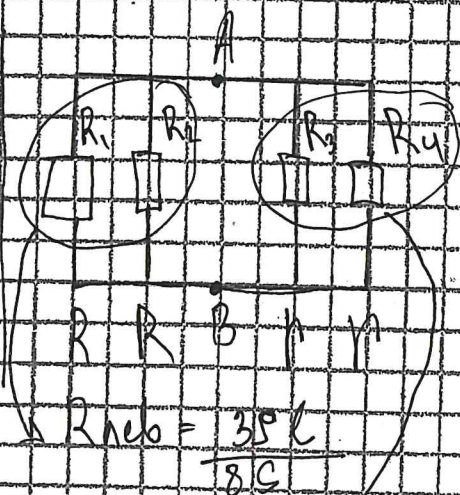 A
R₁ R₂ R₃ R₄
R R B r r
Rлев = 3ρl
8S